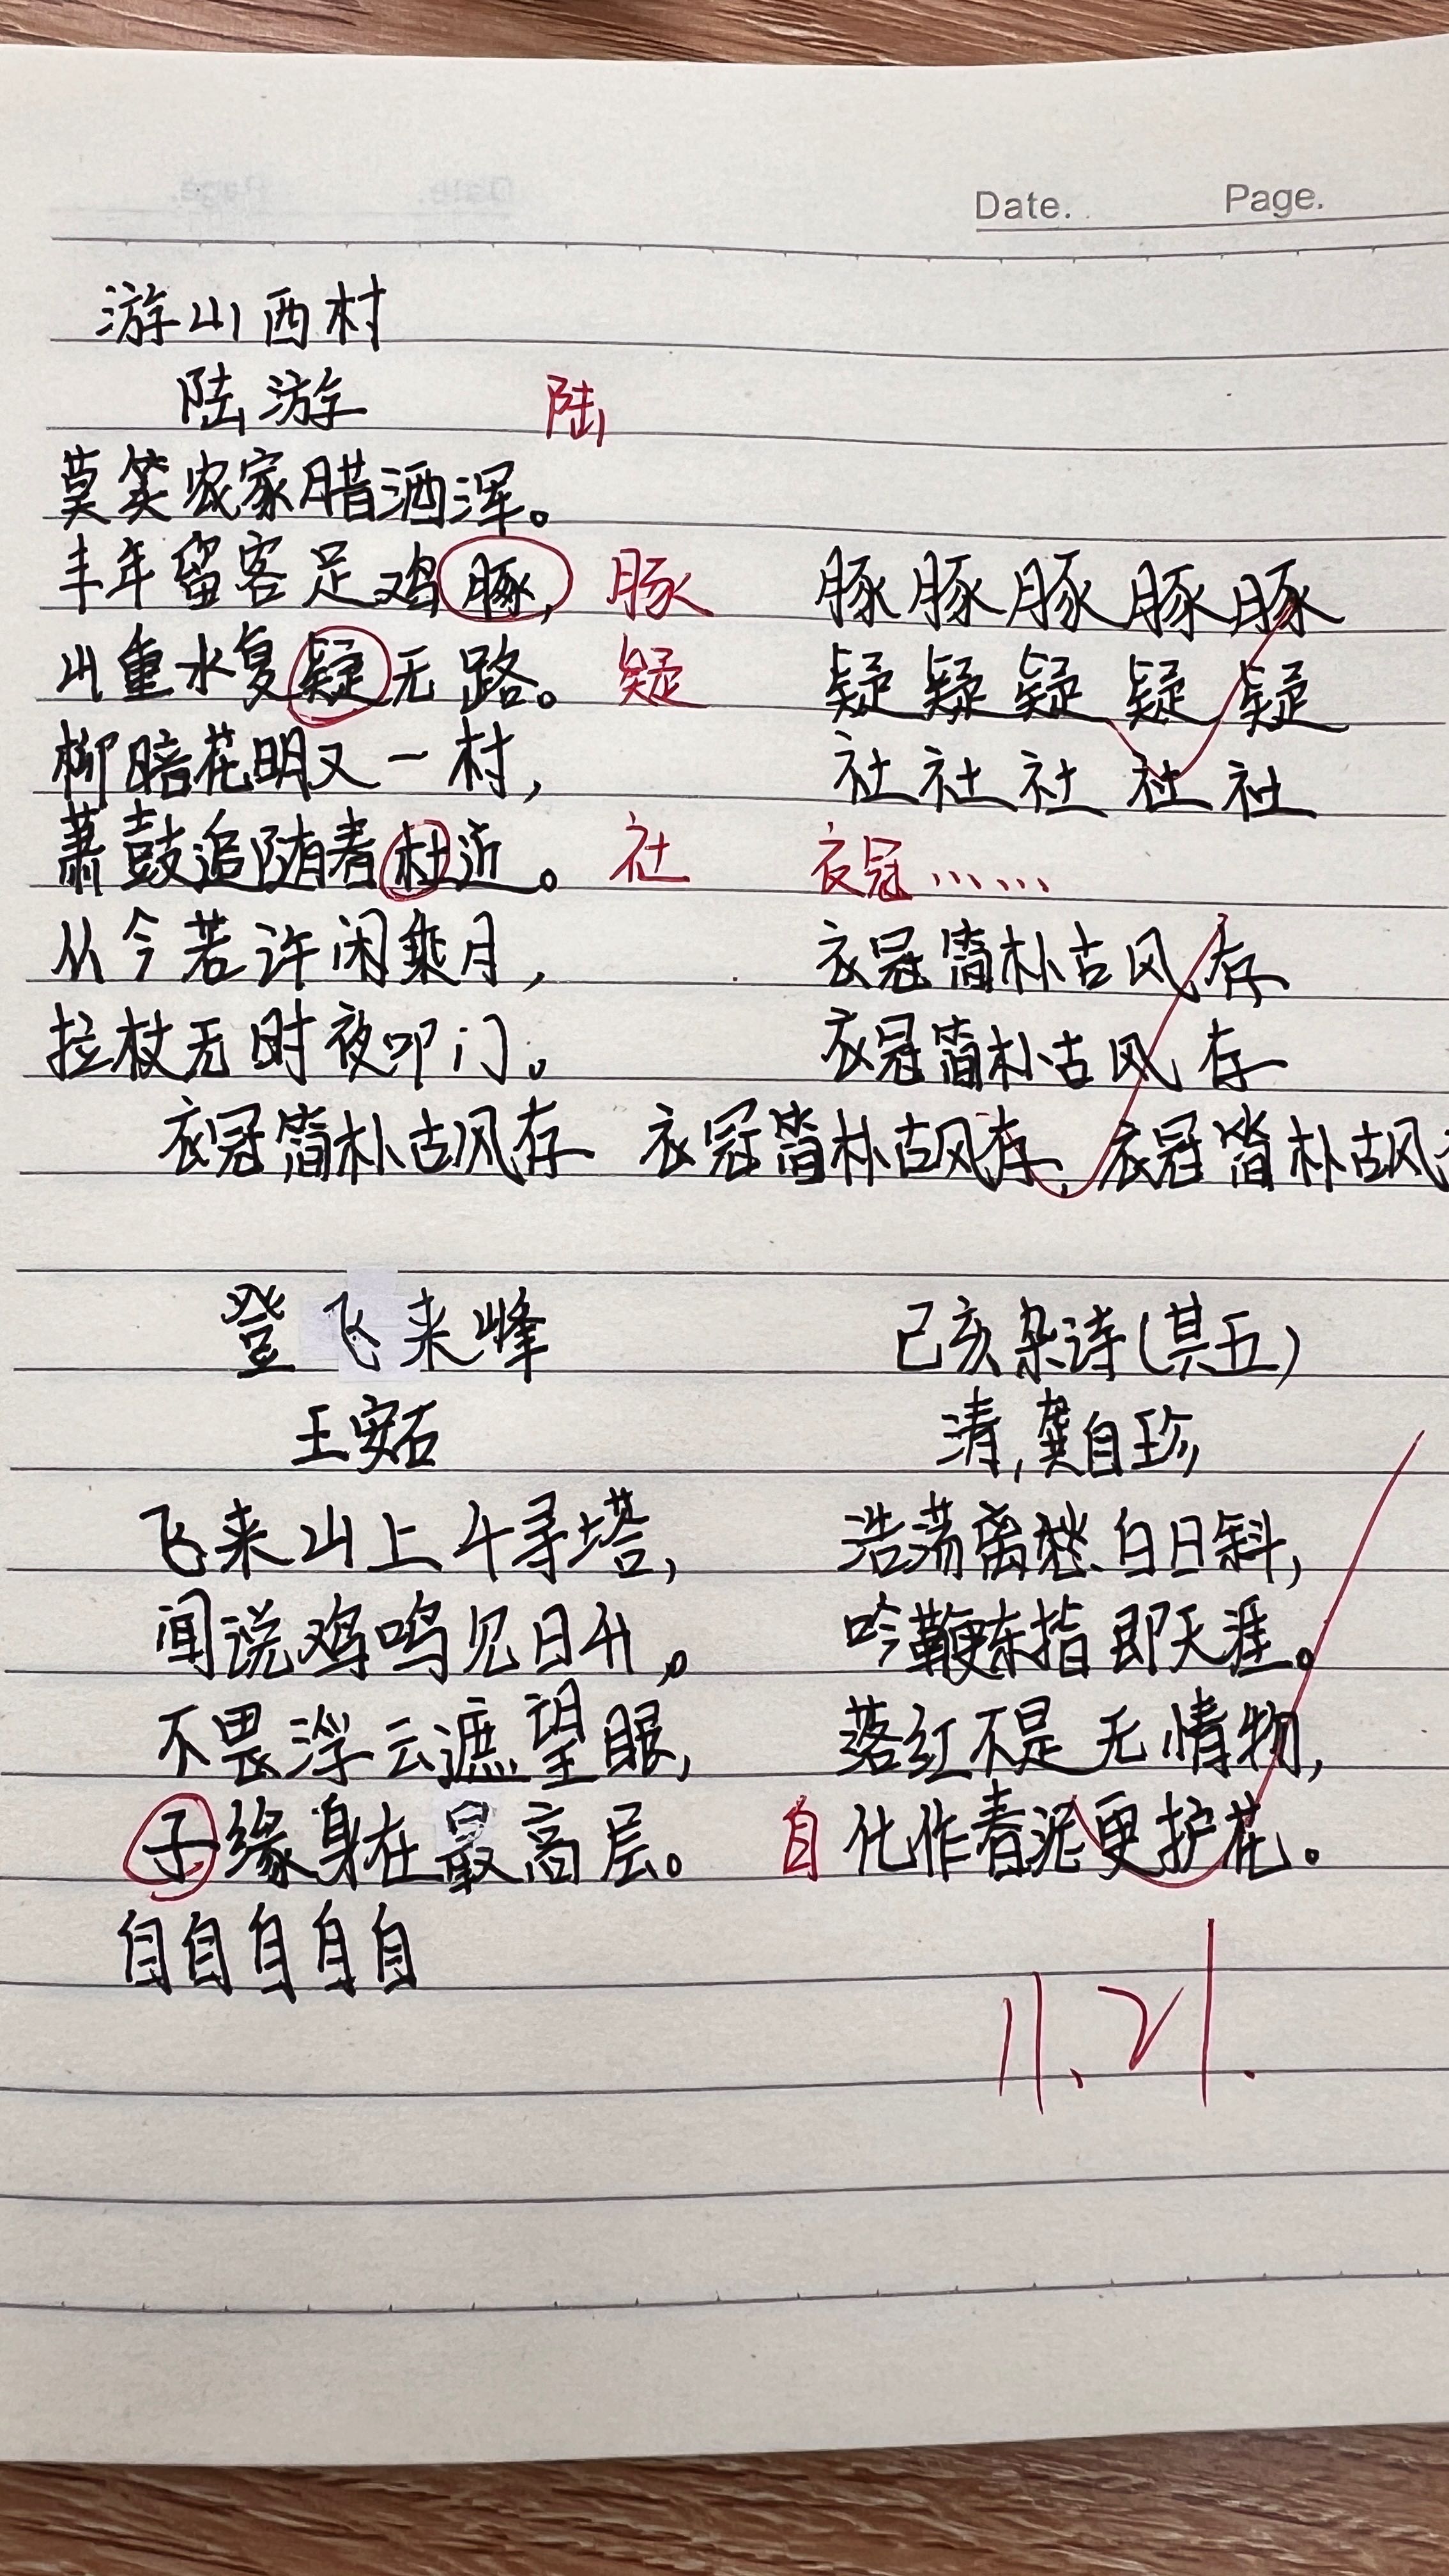 Date. Page.
游山西村
陆游 陆
莫笑农家腊酒浑。
丰年留客足鸡豚, 豚 豚豚豚豚豚
山重水复疑无路。 疑 疑疑疑疑疑
柳暗花明又一村, 社社社社社
萧鼓追随春杜近。 社 衣冠……
从今若许闲乘月, 衣冠简朴古风存
拉杖无时夜叩门。 衣冠简朴古风存
衣冠简朴古风存 衣冠简朴古风存, 衣冠简朴古风
登飞来峰
王安石
飞来山上千寻塔,
闻说鸡鸣见日升。
不畏浮云遮望眼,
子缘身在最高层。 自
自自自自自
己亥杂诗(其五)
清,龚自珍
浩荡离愁白日斜,
吟鞭东指即天涯。
落红不是无情物,
化作春泥更护花。
11.21.